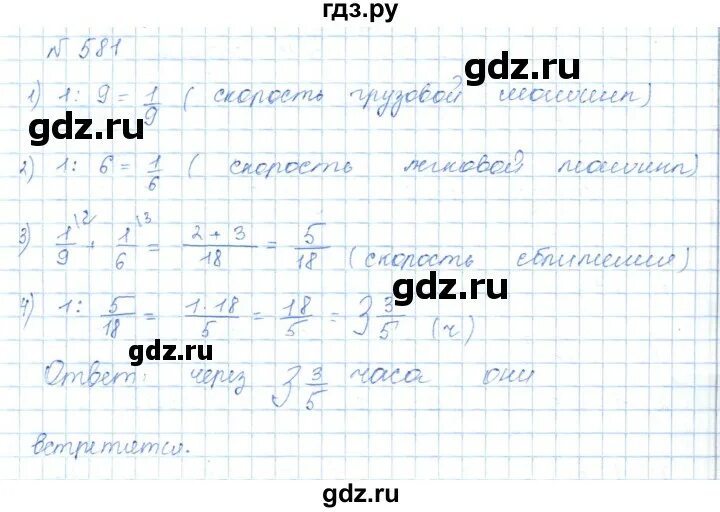 гдз.ру
№ 581
1) 1 : 9 = 1/9 ( скорость грузовой машины)
gdz.ru
gdz.ru
2) 1 : 6 = 1/6 ( скорость легковой машины)
3) 1/9 \2 + 1/6 \3 = 2 + 3/18 = 5/18 ( скорость сближения)
gdz.ru
4) 1 : 5/18 = 1 · 18/5 = 18/5 = 3 3/5 (ч)
gdz.ru
Ответ: через 3 3/5 часа они
встретятся.
gdz.ru